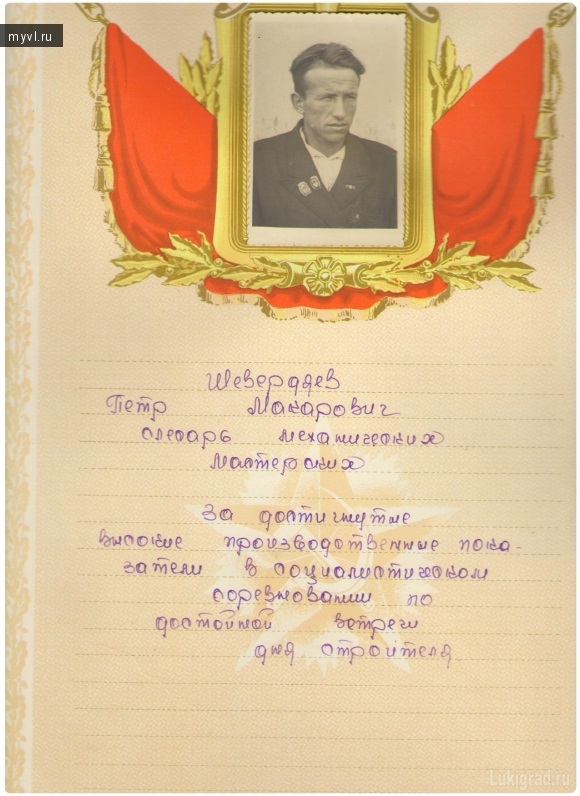 myvl.ru
Шевердяев
Петр Макарович
слесарь механических
мастерских
за достигнутые
высокие производственные пока-
затели в социалистическом
соревновании по
достойной встречи
дня строителя
Lukigrad.ru